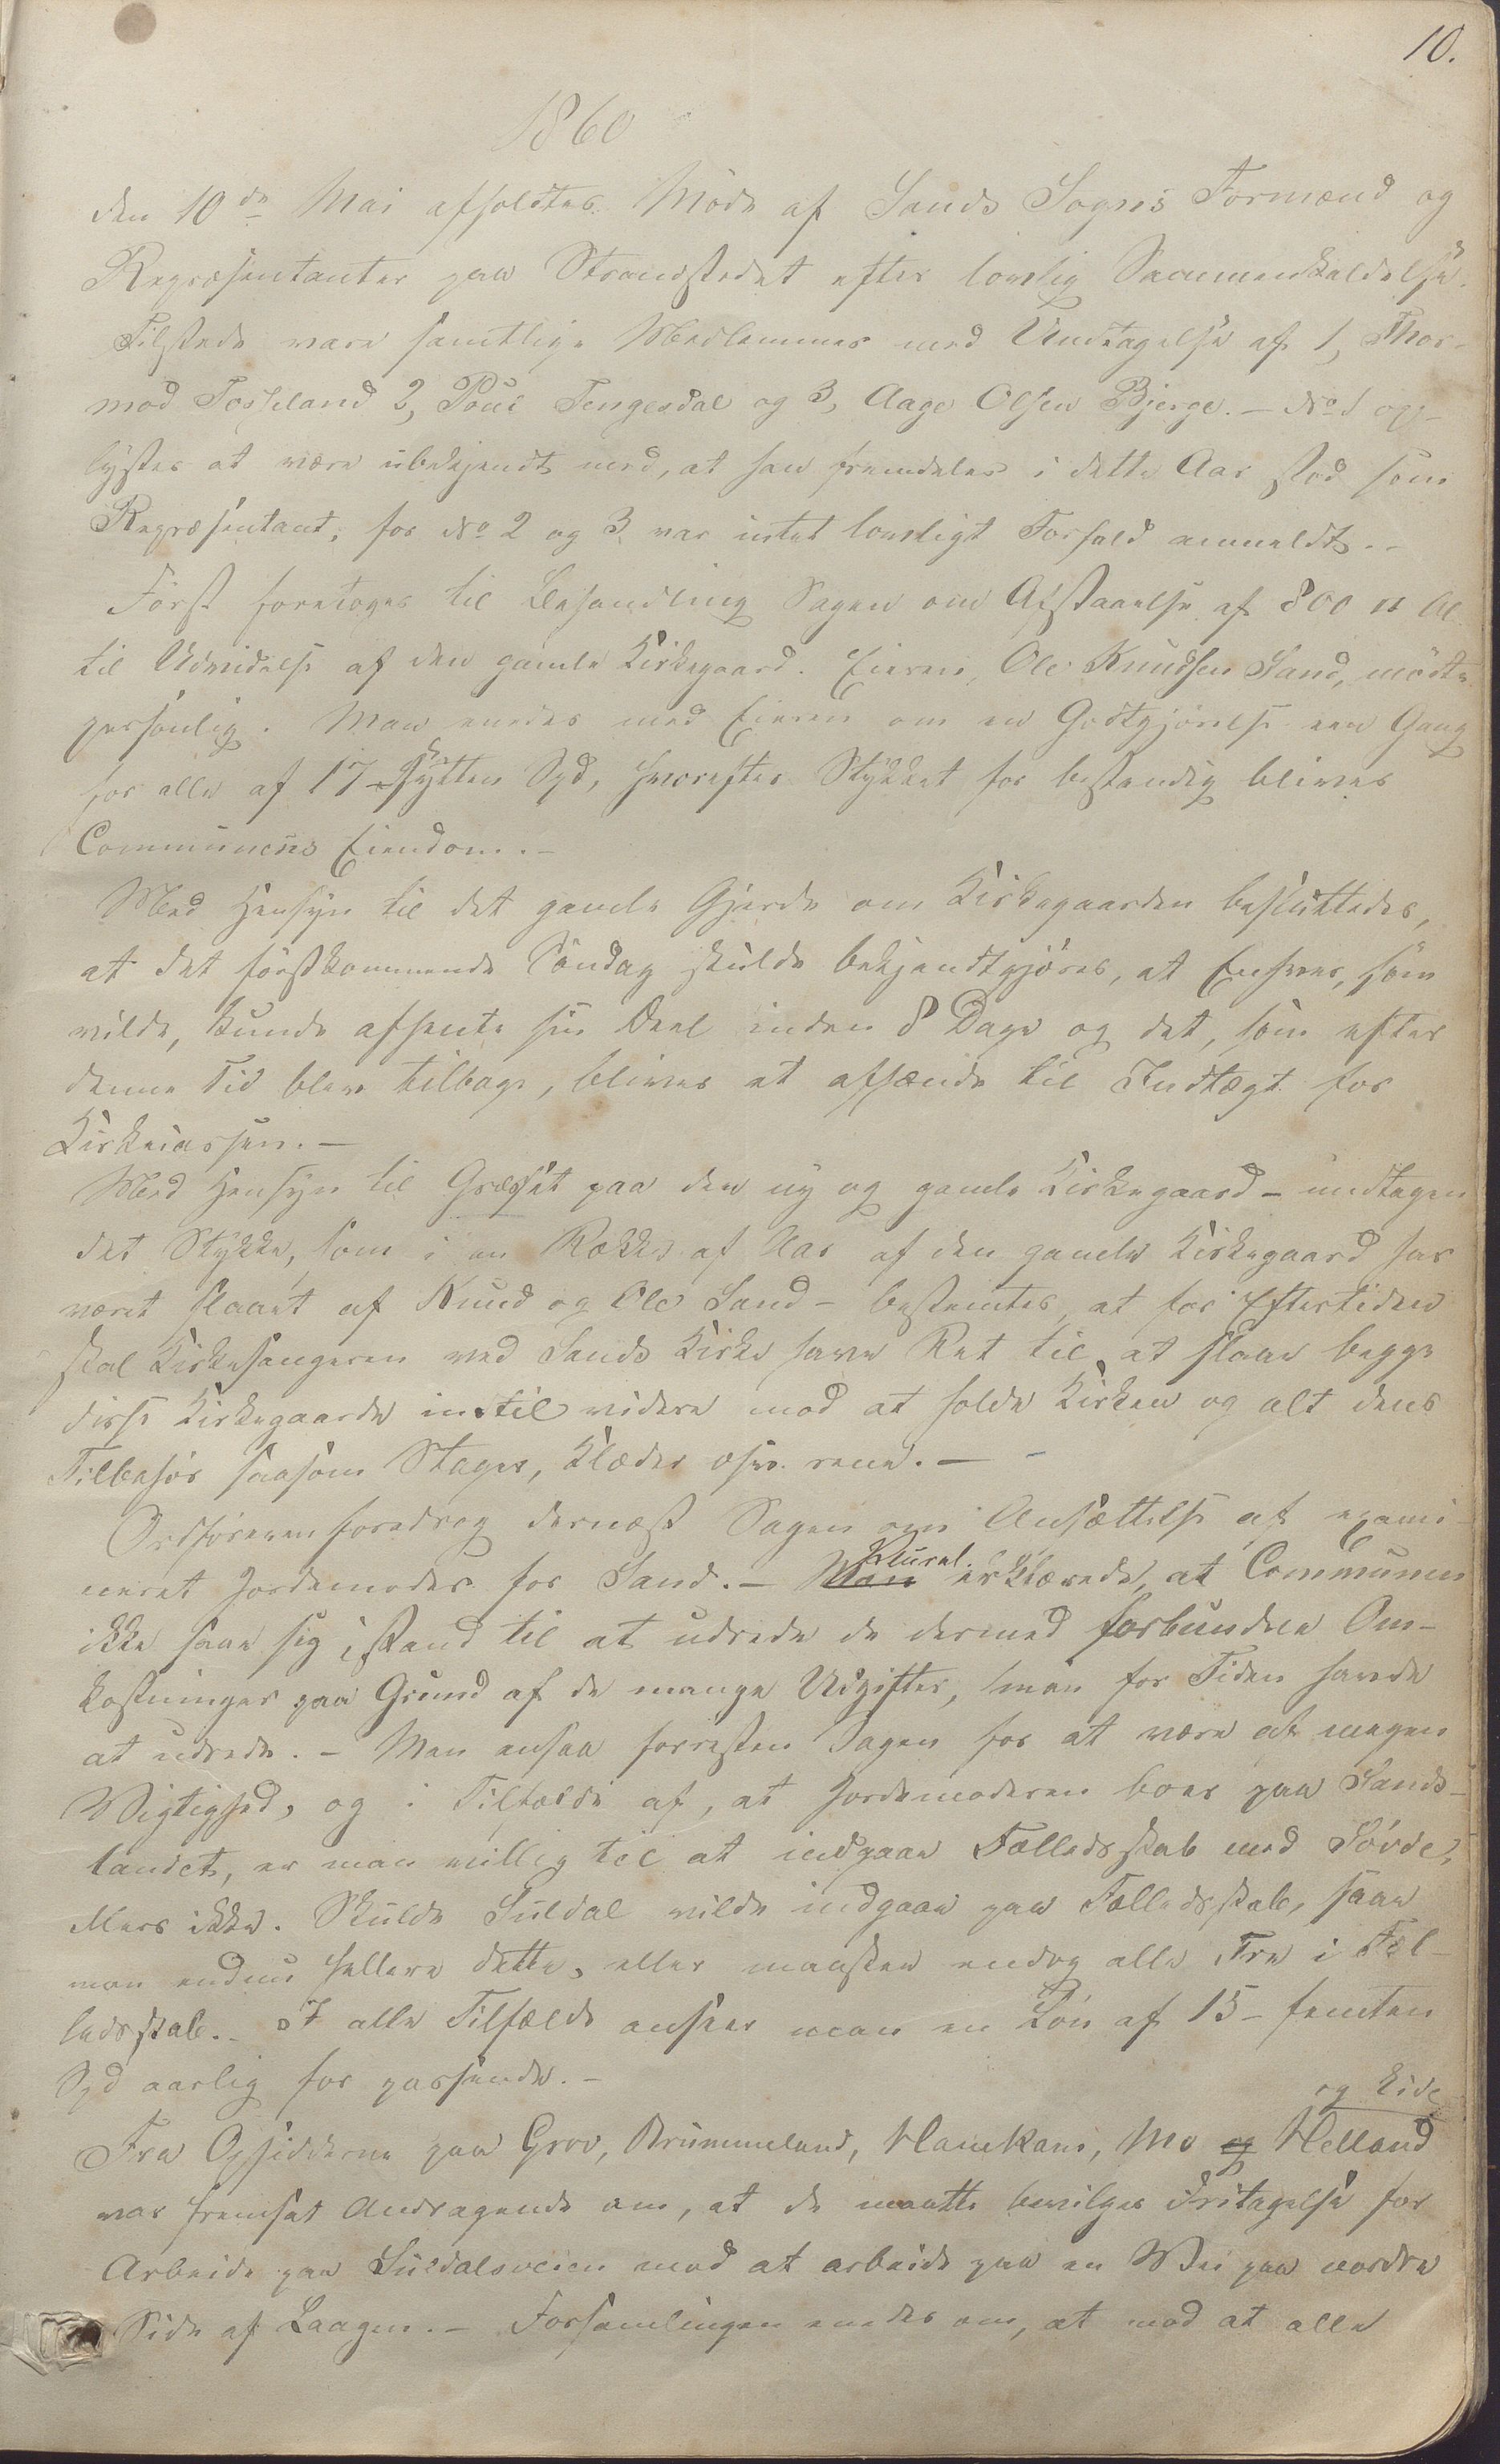 10.
1860
Den 10de Mai afholdtes Møde af Sands Sogns Formænd og
Repræsentanter paa Strandstedet efter lovlig Sammenkaldelse.
Tilstede vare samtlige Medlemmer med Undtagelse af 1, Thor-
mod Fosseland 2, Poul Tengesdal og 3, Aage Olsen Bjerge. – No 1 op-
lystes at være ubekjendt med, at han fremdeles i dette Aar stod som
Repræsentant; for No 2 og 3 var intet lovligt Forfald anmeldt. –
Først foretoges til Behandling Sagen om Afstaaelse af 800 □ Al.
til Udvidelse af den gamle Kirkegaard. Eieren, Ole Knudsen Sand, mødte
personlig. Man enedes med Eieren om en Godtgjørelse een Gang
for alle af 17 – sytten Spd, hvorefter Stykket for bestandig bliver
Communens Eiendom. –
Med Hensyn til det gamle Gjerde om Kirkegaarden besluttedes,
at det førstkommende Søndag skulde bekjendtgjøres, at Enhver, som
vilde, kunde afhente sin Deel inden 8 Dage og det, som efter
denne Tid blev tilbage, bliver at afhænde til Indtægt for
Kirkecassen. –
Med Hensyn til Græsset paa den ny og gamle Kirkegaard – undtagen
det Stykke, som i en Række af Aar af den gamle Kirkegaard har
været slaaet af Knud og Ole Sand – bestemtes, at for Eftertiden
skal Kirkesangeren ved Sands Kirke have Ret til at slaae begge
disse Kirkegaarde indtil videre mod at holde Kirken og alt dens
Tilbehør saasom Stager, Klæder osv. rene. –
Ordføreren foredrog dernæst Sagen om Ansættelse af exami-
neret Jordemoder for Sand. – Man Plural. erklærede, at Communen
ikke saae sig istand til at udrede de dermed forbundne Om-
kostninger paa Grund af de mange Udgifter, man for Tiden havde
at udrede. – Man ansaa forresten Sagen for at være af megen
Vigtighed, og i Tilfælde af, at Jordemoderen boer paa Sands-
landet, er man villig til at indgaae Fælledsskab med Søvde,
ellers ikke. Skulde Suldal vilde indgaae paa Fælledsskab, saae
man endnu hellere dette, eller maaskee endog alle Tre i Fæl-
ledsskab. – I alle Tilfælde anseer man en Løn af 15 – femten
Spd aarlig for passende. –
og Eide
Fra Opsidderne paa Grov, Brummeland, Hanekam, Mo og Helland
var fremsat Andragende om, at de maatte bevilges Fritagelse for
Arbeide paa Suldalsveien mod at arbeide paa en Vei paa nordre
Side af Laagen. – Forsamlingen enedes om, at mod at alle